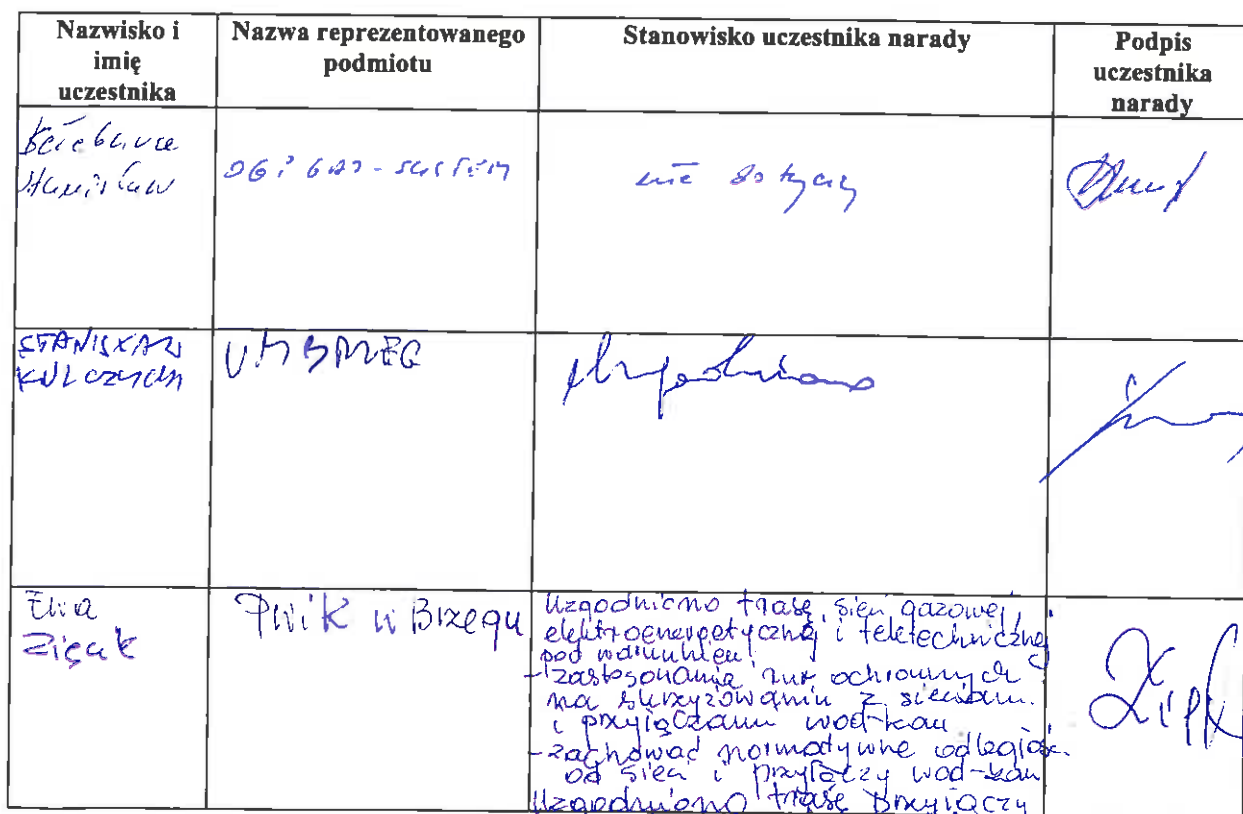 Nazwisko i
imię
uczestnika
Nazwa reprezentowanego
podmiotu
Stanowisko uczestnika narady
Podpis
uczestnika
narady
Stanisław
nie dotyczy
STANISŁAW
UM BRZEG
Uzgodniono
Ewa
Zięcik
PWiK w Brzegu
Uzgodniono trasę sieci gazowej,
elektroenergetycznej i teletechnicznej
pod warunkiem:
- zastosowania rur ochronnych
na skrzyżowaniu z sieciami
i przyłączami wod-kan
- zachować normatywne odległość
od sieci i przyłączy wod-kan
Uzgodniono trasę przyłączy